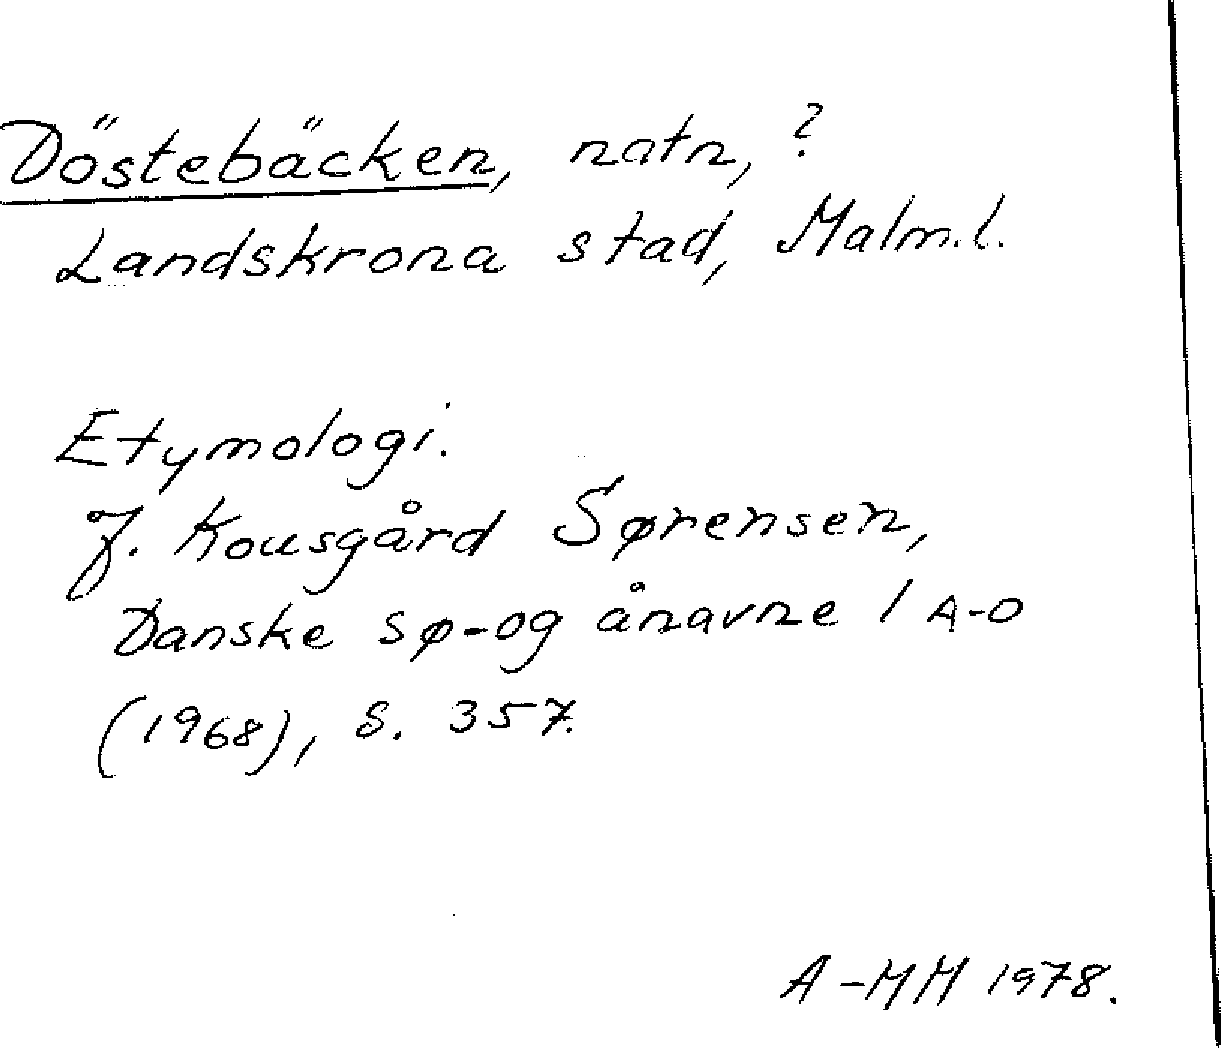 Döstebäcken, natn, ?
Landskrona stad, Malm.l.
Etymologi.
J. Kousgård Sørensen,
Danske sø-og ånavne 1 A-D
(1968), s. 357.
A-MM 1978.